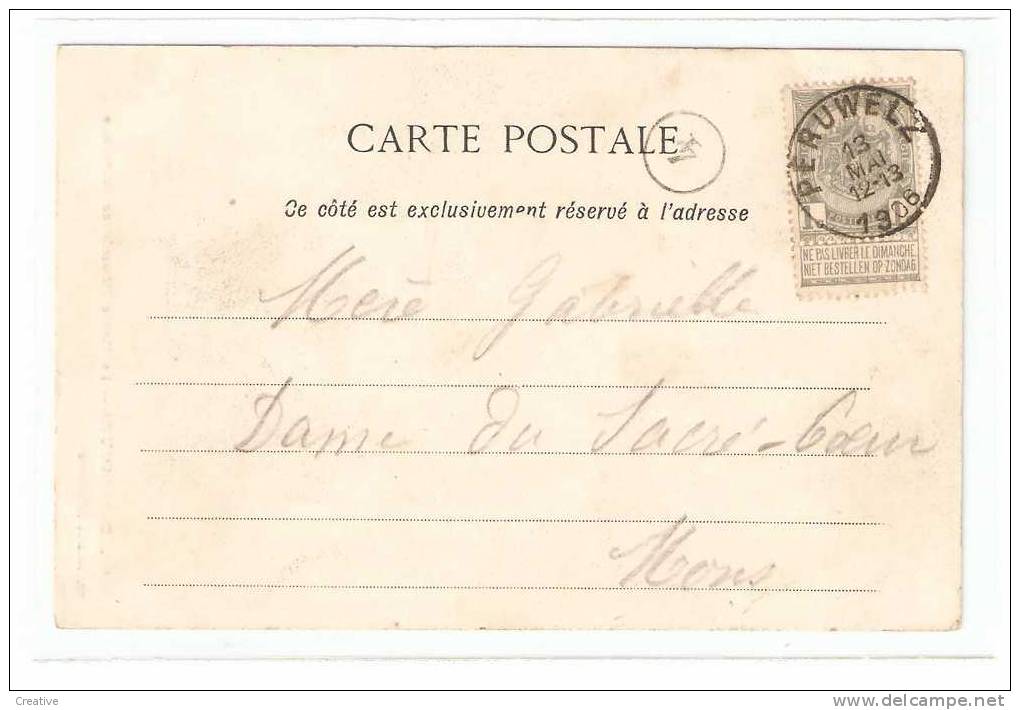 CARTE POSTALE
Ce côté est exclusivement réservé à l'adresse
PERUWELZ
13
MAI
12-13
1906
NE PAS LIVRER LE DIMANCHE
NIET BESTELLEN OP ZONDAG
Mère Gabrielle
Dame du Sacré-Cœur
Mons
Creative
www.delcampe.net